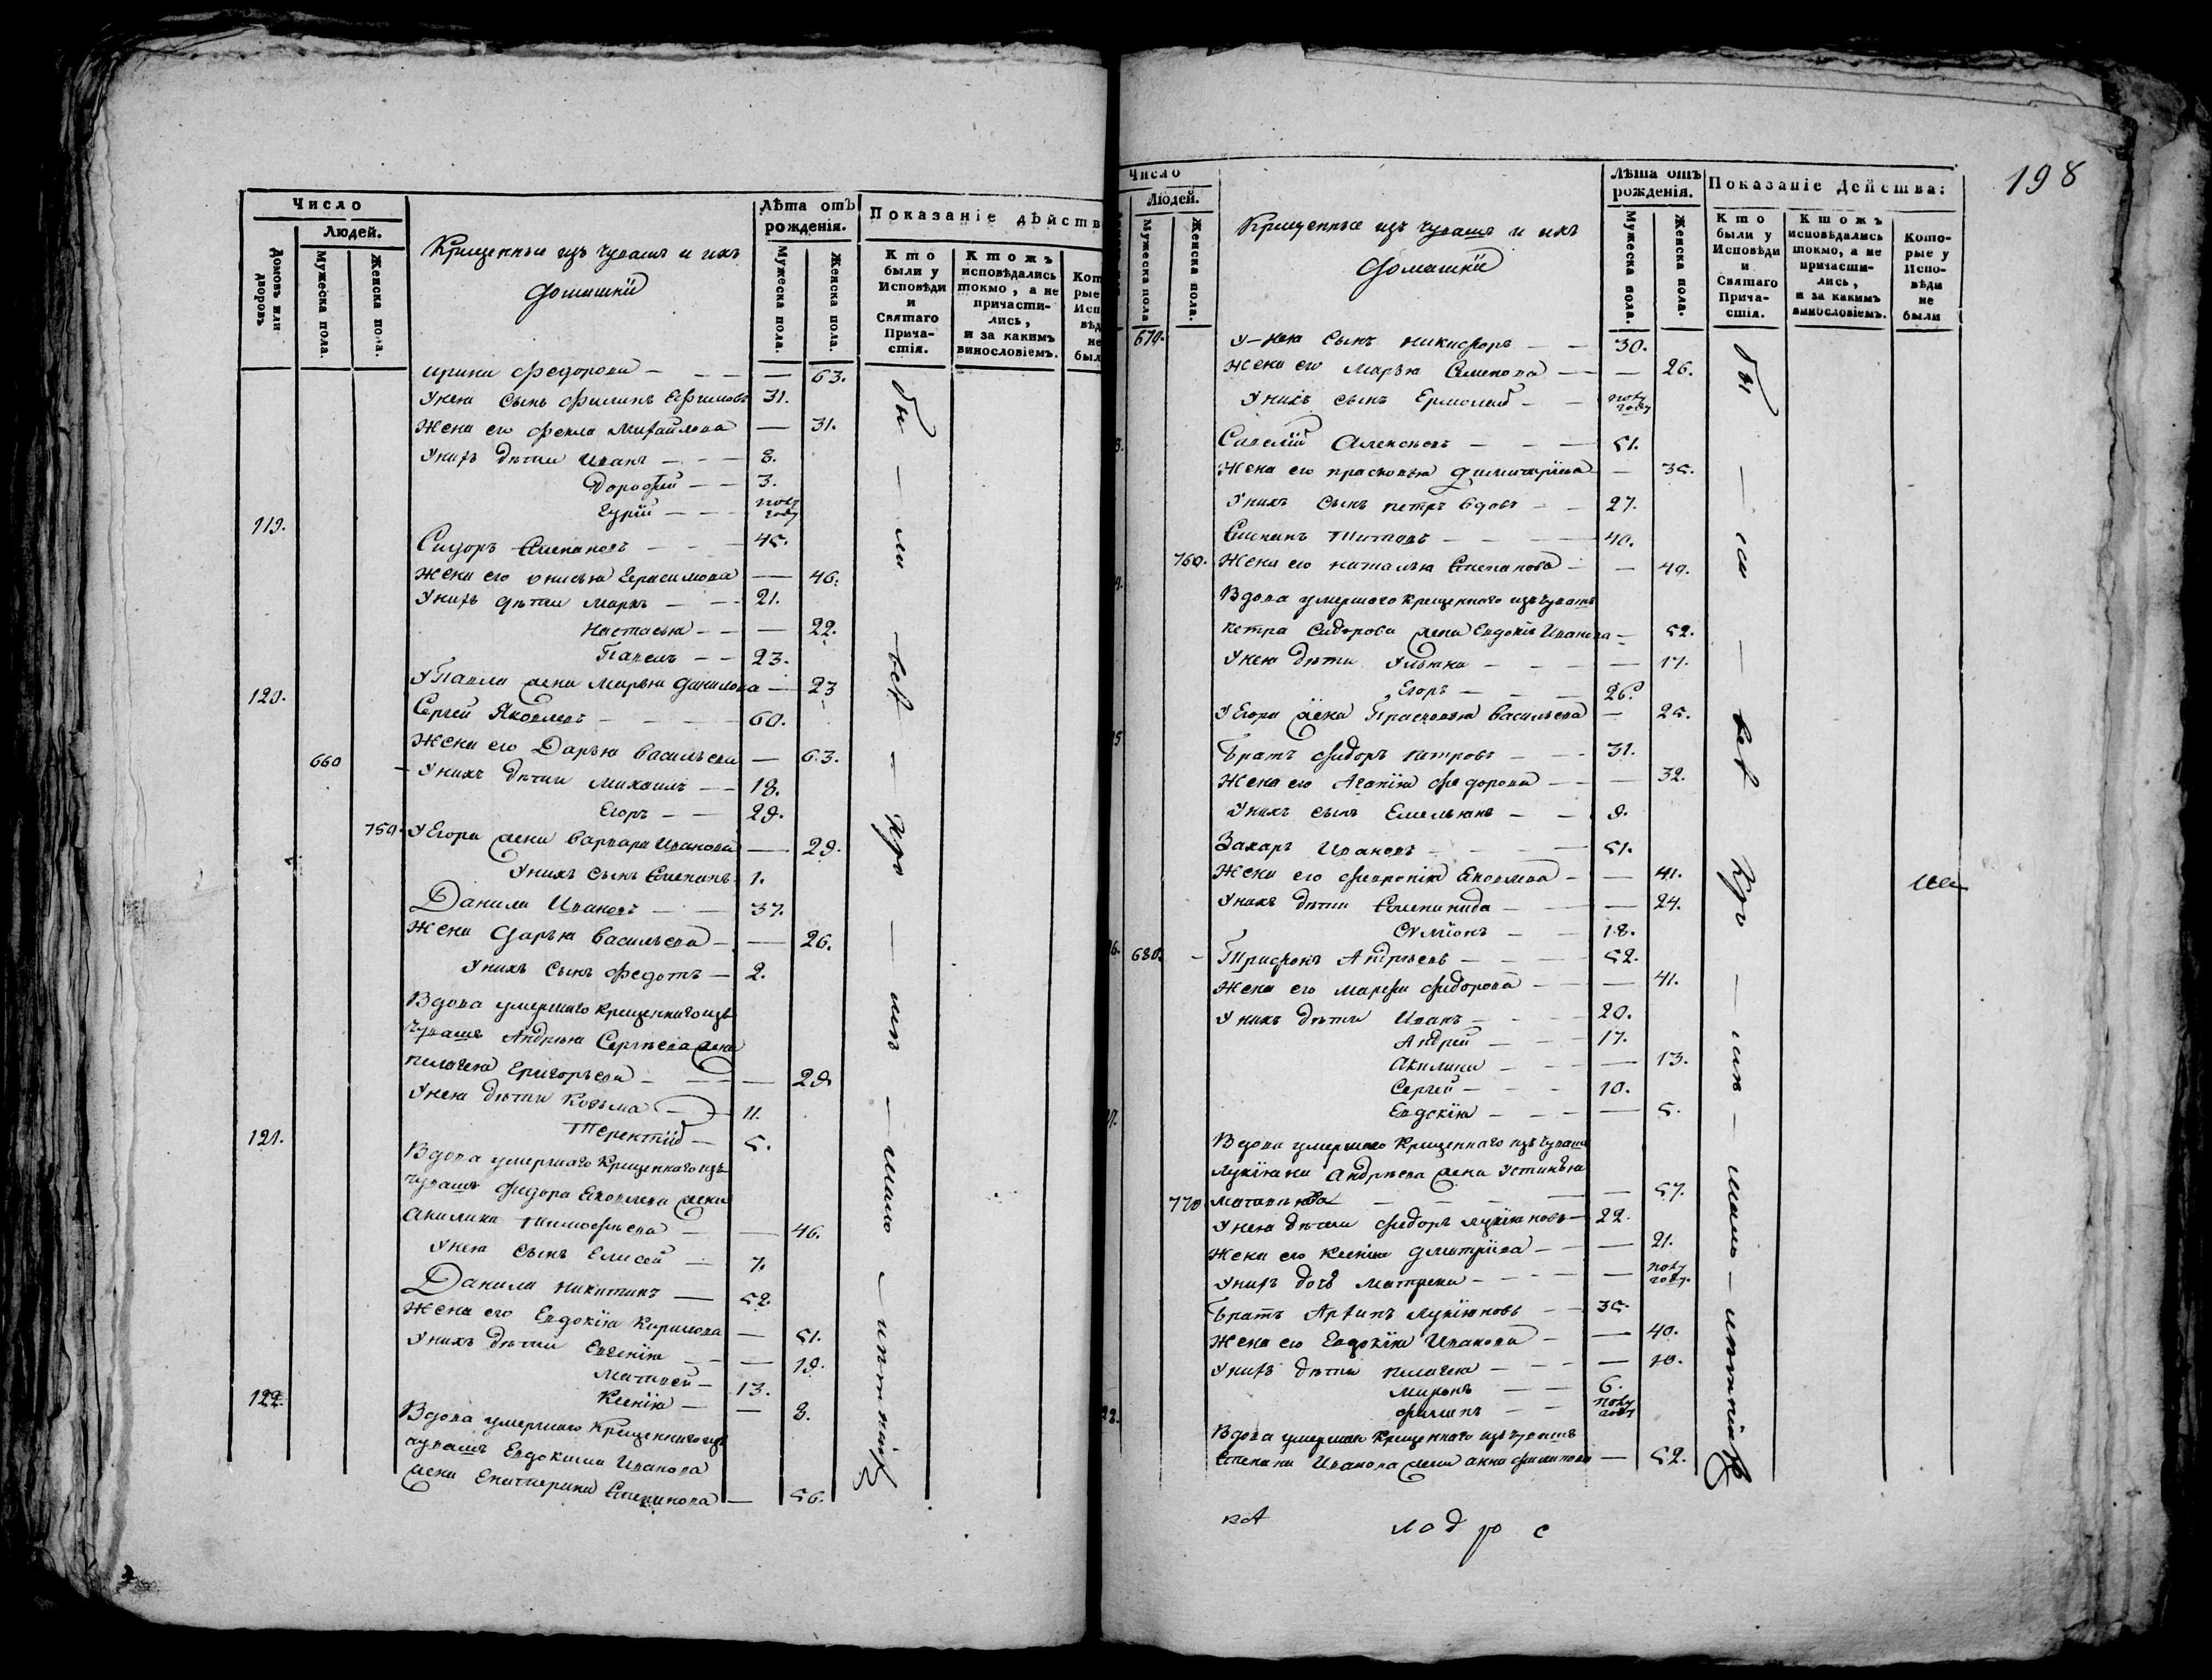 Число
Людей.
Домовъ или дворовъ
Мужеска пола.
Женска пола.
Крещенные изъ чувашъ и ихъ
домашнїи
Лѣта отъ рожденія.
Мужеска пола.
Женска пола.
Показаніе дѣйств
Кто были у Исповѣди и Святаго Прича-стія.
Ктожъ исповѣдались токмо, а не причасти-лись, и за какимъ винословіемъ.
ирина Федорова — 63.
У нея сынъ Филипъ Ефимовъ 31.
Жена его Фекла Михайлова — 31.
У нихъ дѣти Иванъ — 8.
Дорофей — 3.
Гурїй — полу году
119.
Сидоръ Степановъ — 45.
Жена его Герасимова — 46.
У нихъ дѣти Маркъ — 21.
Настасья — 22.
Павелъ — 23.
У Павла жена Марья Данилова — 23
120.
Сергей Яковлевъ — 60.
Жена его Дарья Васильева — 63.
660 У нихъ дѣти Михаилъ — 18.
Егоръ — 29.
759. У Егора жена Варвара Иванова — 29.
У нихъ сынъ Степанъ 1.
Данила Ивановъ — 37.
Жена Дарья Васильева — 26.
У нихъ сынъ Федотъ — 2.
Вдова умершаго крещеннаго изъ
чувашъ Андрея Сергѣева жена
Пелагея Григорьева — 29
У нея дѣти Козьма — 11.
Терентїй — 5.
121.
Вдова умершаго крещеннаго изъ
чувашъ Федора Яковлева жена
Акилина Тимофѣева — 46.
У нея сынъ Елисей — 7.
Данила Никитинъ — 52.
Жена его Евдокїя Кирилова — 51.
У нихъ дѣти Евгенїя — 19.
Матвей — 13.
Ксенїя — 8.
122.
Вдова умершаго крещеннаго изъ
чувашъ Евдокима Иванова
жена Екатерина Степанова — 56.
бы — ли — всѣ — кро — мѣ — мало — лѣтнихъ
198
Число
Людей.
Мужеска пола
Женска пола.
Крещенные изъ чувашъ и ихъ
домашнїи
Лѣта отъ рожденія.
Мужеска пола.
Женска пола.
Показаніе действа:
Кто были у Исповѣди и Святаго Прича-стія.
Ктожъ исповѣдались токмо, а не причасти-лись, и за какимъ винословіемъ.
Кото-рые у Испо-вѣди не были
670. У нея сынъ Никифоръ — 30.
Жена его Марья Семенова — 26.
У нихъ сынъ Ермолай — полу году
Савелїй Алексѣевъ — 51.
Жена его Прасковья Димитрїева — 35.
У нихъ сынъ Петръ вдовъ — 27.
Степанъ Титовъ — 40.
760. Жена его Наталья Степанова — 49.
Вдова умершаго крещеннаго изъ чувашъ
Петра Сидорова жена Евдокїя Иванова — 52.
У нея дѣти Ульяна — 17.
Егоръ — 26.
У Егора жена Прасковья Васильева — 25.
Братъ Федоръ Петровъ — 31.
Жена его Агапїя Федорова — 32.
У нихъ сынъ Емельянъ — 9.
Захаръ Ивановъ — 51.
Жена его Февронїя Яковлева — 41.
У нихъ дѣти Степанида — 24.
Сѵмїонъ — 18.
680. Трифонъ Андрѣевъ — 52.
Жена его Марѳа Федорова — 41.
У нихъ дѣти Иванъ — 20.
Андрей — 17.
Акилина — 13.
Сергей — 10.
Евдокїя — 5.
Вдова умершаго крещеннаго изъ чувашъ
Лукїяна Андрѣева жена Устинья
770 — 57.
У нея дѣти Федоръ Лукїяновъ — 22.
Жена его Ксенїя Дмитрїева — 21.
У нихъ дочь Матрена — полу году.
Братъ Архипъ Лукїяновъ — 35.
Жена его Евдокїя Иванова — 40.
У нихъ дѣти Пелагея — 10.
Миронъ — 6.
Филипъ — полу году
Вдова умершаго крещеннаго изъ чувашъ
Степана Иванова жена Анна Филипова — 52.
бы — ли — всѣ — кро — мѣ — мало — лѣтнихъ